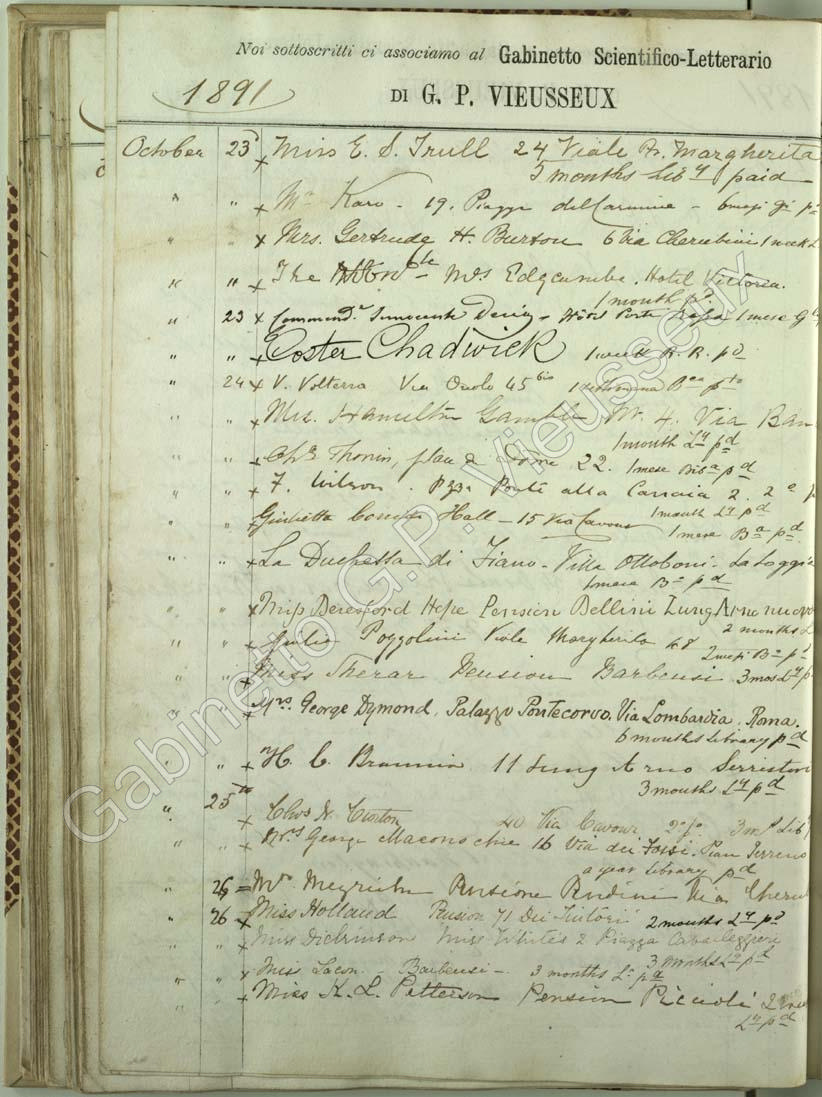 Noi sottoscritti ci associamo al Gabinetto Scientifico-Letterario
1891
DI G. P. VIEUSSEUX
October 23 x Miss E. S. Trull 24 Viale P. Margherita
3 months Liby paid
" " x Mr Karo - 19. Piazza del Carmine -
" " x Mrs. Gertrude H. Burton 6 Via Cherubini 1 week L
" " x The Honble Mrs Edgcumbe. Hotel Vittoria.
1 month pd.
" 23 x Commendr Innocente 1 mese
" " x Coster Chadwick 1 week R. R. pd
" 24 x V. Volterra Via Oriolo 45 bis 1 settimana Bca pto
" " x Mrs. Hamilton Gamble 4. Via
1 month Ly pd
" " x Chs Thonin, place du Dome 22. 1 mese Biba pd
" " x F. Wilson. Pzza Ponte alla Carraia 2. 2a
1 month Ly pd
" " Giulietta Hall - 15 Via Cavour
1 mese Ba pd
" " x La Duchessa di Fiano - Villa Ottoboni - La Loggia
1 mese Ba pd
" " x Miss Beresford Hope Pension Bellini Lung Arno nuovo
2 months L
" " x Giulia Pozzolini Viale Margherita 48
2 mesi Ba pd
" " x Miss Sherar Pension Barbensi 3 mos Ly p
" " x Mrs. George Dymond. Palazzo Pontecorvo. Via Lombardia. Roma.
6 months Library pd
" " x H. C. 11 Lung Arno Serristori
3 months Ly pd
" 25 x Chas N. 40 Via Cavour 2o po 3 ms Lib
" " x Mrs George Maconochie 16 Via dei Fossi. Pian Terreno
a year Library pd
" 26 = Pensione Rudini Via Cheru
" 26 x Miss Holland Pension 71 Dei Tintori 2 months Ly pd
" " x Miss Dickinson Miss White's 2 Piazza Cavalleggieri
3 months Ly pd
" " x Miss Lacon - Barbensi - 3 months Ly pd
" " x Miss K. L. Patterson Pension Piccioli 2
Ly pd
Gabinetto G.P. Vieusseux